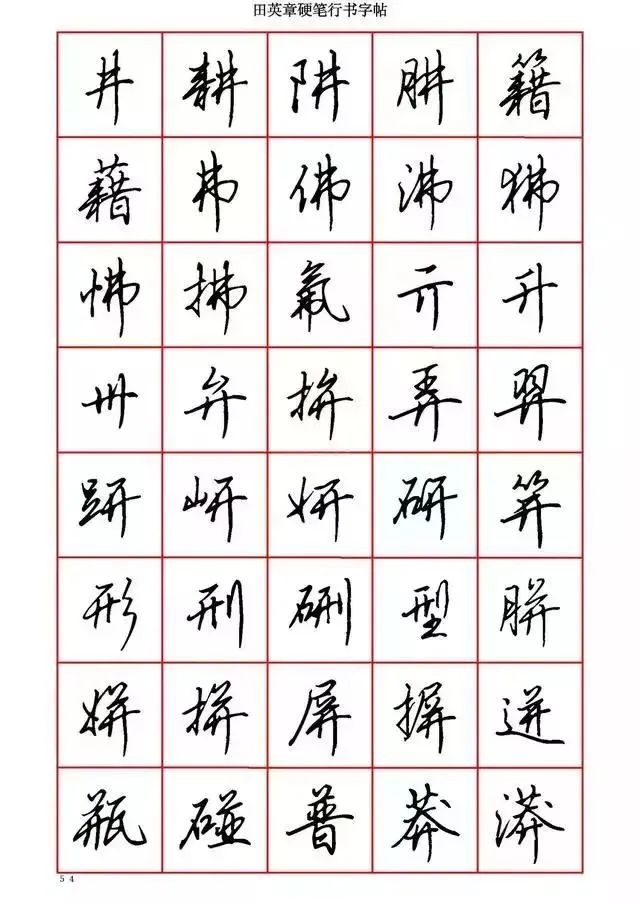 田英章硬笔行书字帖
井 耕 阱 肼 籍
藉 弗 佛 沸 狒
怫 拂 氟 亓 升
卅 弁 拚 弄 羿
趼 岍 妍 研 笄
形 刑 硎 型 胼
姘 拼 屏 摒 迸
瓶 碰 普 莽 漭
54